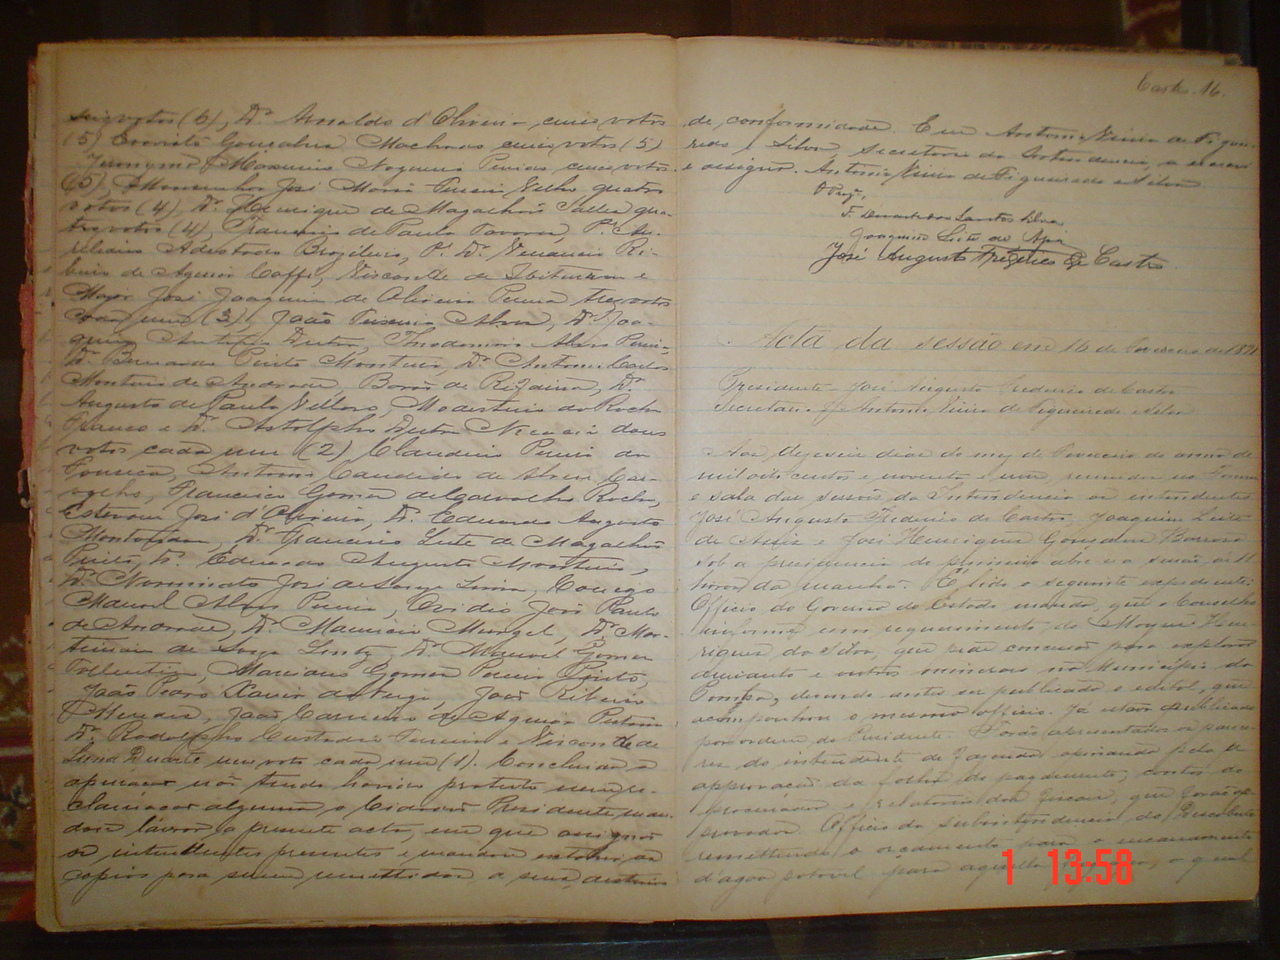 seis votos (6), Dr. Arnaldo d'Oliveira cinco votos
(5) Evaristo Gonçalves Machado cinco votos (5)
Jeronymo Maximo Nogueira Penido cinco votos
(5), Monsenhor José Maria Pereira Velho quatro
votos (4), Dr. Henrique de Magalhães Salles qua-
tro votos (4), Francisco de Paula Tavora, Pe. Au-
reliano Adeodato Brazileiro, Pe. Dr. Venancio Ri-
beiro de Aguiar Caffé, Visconde de Ibituruna e
Major José Joaquim de Oliveira Penna tres votos
cada um (3), João Teixeira Alves, Dr. Joa-
quim Antonio Dutra, Theodomiro Alves Pereira
Dr. Bernardo Pinto Monteiro, Dr. Antonio Carlos
Monteiro de Andrade, Barão de
Augusto de Paula Velloso, Modestino da Rocha
Franco e Dr. Astolpho Dutra Nicacio dous
votos cada um (2) Claudino Pereira da
Fonseca, Antonio Candido de Car-
valho, Francisco Gomes de Carvalho Rocha,
Estevam José d'Oliveira, Dr. Eduardo Augusto
Dr. Francisco Leite de Magalhães
Pinto, Dr. Eduardo Augusto Monteiro,
Dr. Nominato José de Souza Lima, Conego
Manoel Alves Pereira, Ovidio João Paulo
de Andrade, Dr. Mauricio Murgel, Dr. Mar-
Dr. Manoel Gomes
Tolentino, Marciano Gomes Pereira
João Pedro Xavier da Veiga, José Ribeiro
Mendes, João Carneiro de Aguiar
Dr. Rodolpho Custodio Ferreira e Visconde de
Lima Duarte um voto cada um (1). Concluida a
apuração não tendo havido protesto nem re-
clamação alguma, o Cidadão Presidente man-
dou lavrar a presente acta, em que assignão
os intendentes presentes e mandou extrahir as
copias para serem remettidas a seus destinos
Castro. 16.
de conformidade. Eu Antonio Vieira de Figuei-
redo e Silva Secretario da Intendencia, a escrevi
e assigno. Antonio Vieira de Figueiredo e Silva
O Prez.,
F. Duarte dos Santos Silva
Joaquim Leite de Assis
José Augusto Frederico de Castro
Acta da sessão em 16 de Fevereiro de 1891
Presidente - José Augusto Frederico de Castro
Secretario - Antonio Vieira de Figueiredo e Silva
Aos dezeseis dias do mez de Fevereiro do anno de
mil oito centos e noventa e um, reunidos no Forum
e sala das sessões da Intendencia os intendentes
José Augusto Frederico de Castro, Joaquim Leite
de Assis e José Henriques Gonçalves Barroso
sob a presidencia do primeiro abre-se a sessão ás 11
horas da manhã. É lido o seguinte expediente:
Officio do Governo do Estado manda, que o Conselho
informe com requerimento de Moysés Hen-
riques da Silva, que pede concessão para explorar
amianto e outros mineraes no Municipio do
Pomba, devendo antes ser publicado o edital, que
acompanhou o mesmo officio. Já estão publicados
por ordem do Presidente. Forão apresentados os parece-
res do intendente de fazenda, opinando pela a
approvação da folha de pagamento, contas do
procurador e relatorio dos fiscaes, que forão ap-
provados. Officio da subintendencia do Piscamba
remettendo o orçamento para o encanamento
d'agoa potavel para o qual
1 13:58